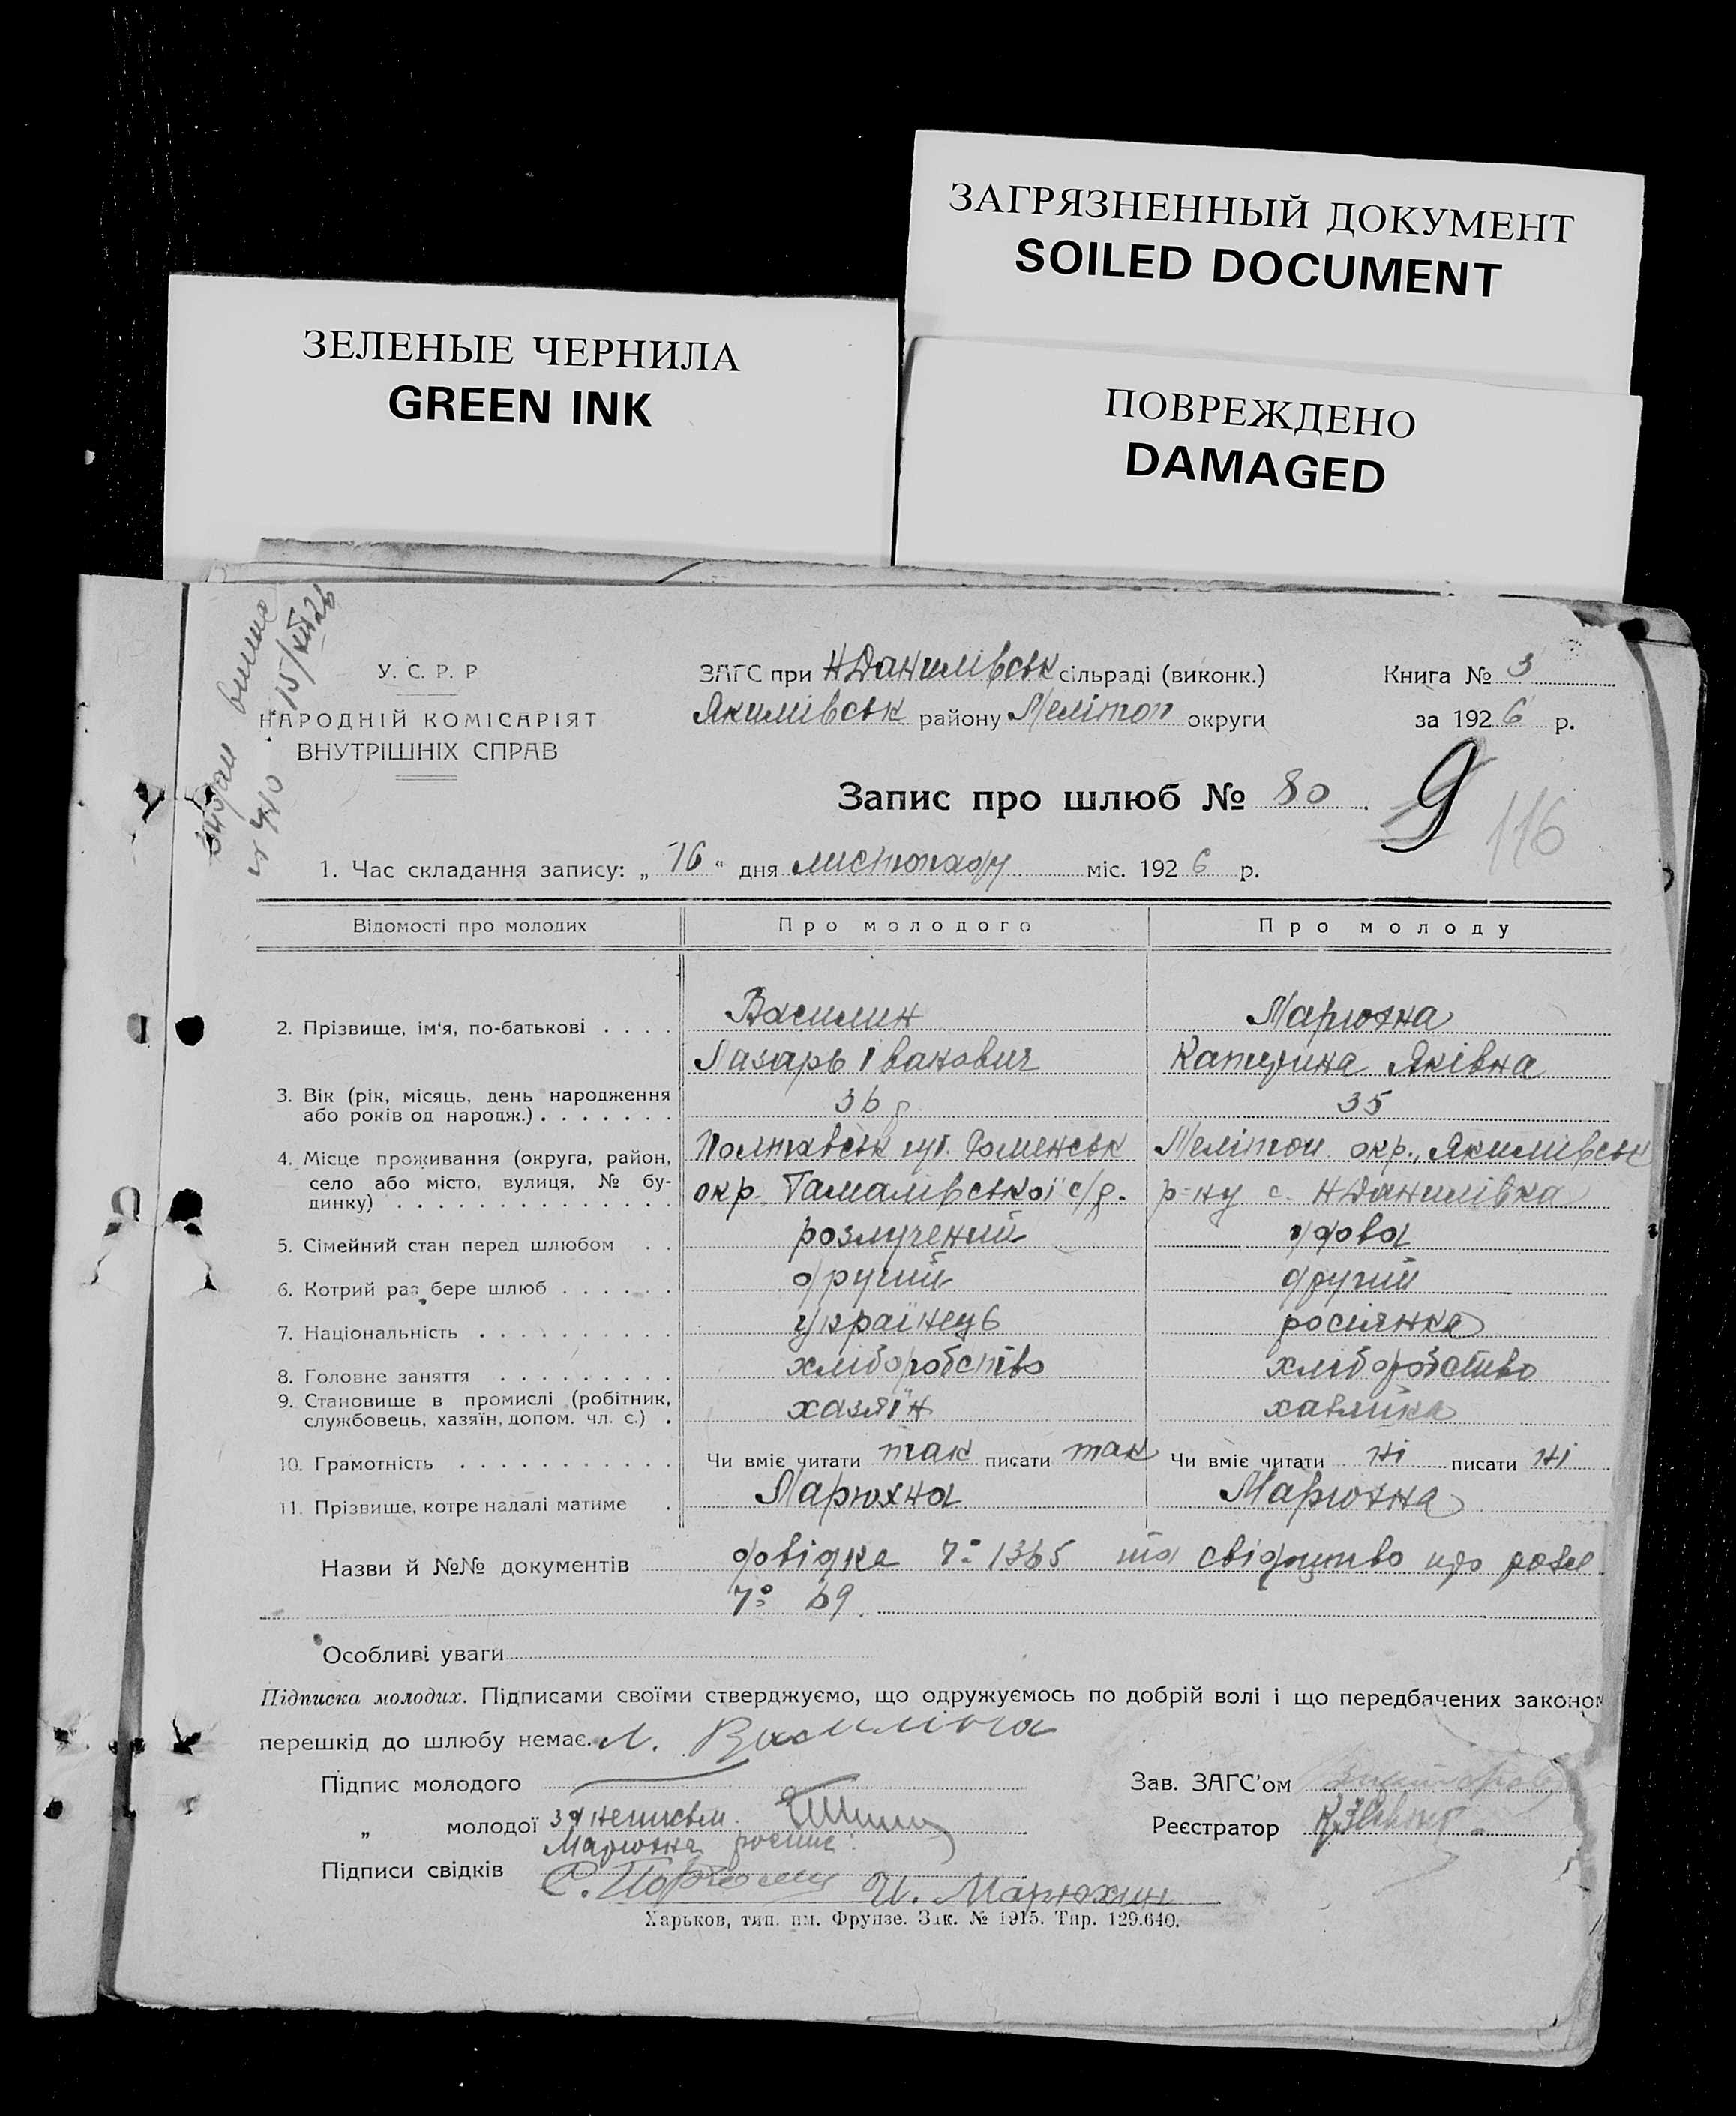 ЗАГРЯЗНЕННЫЙ ДОКУМЕНТ
SOILED DOCUMENT
ЗЕЛЕНЫЕ ЧЕРНИЛА
GREEN INK
ПОВРЕЖДЕНО
DAMAGED
15/XII 26
У. С. Р. Р
НАРОДНІЙ КОМІСАРІЯТ
ВНУТРІШНІХ СПРАВ
ЗАГС при НДанилівськ сільраді (виконк.)
Якимівськ району Мелітоп округи
Книга № 3
за 1926 р.
Запис про шлюб № 80
9
116
1. Час складання запису: „ 16 “ дня листопаду міс. 1926 р.
Відомості про молодих Про молодого Про молоду
2. Прізвище, ім'я, по-батькові . . . . Василин Марюхна
Лазарь Іванович Катерина Яківна
3. Вік (рік, місяць, день народження
або років од народж.) . . . . . . . 36 р 35
4. Місце проживання (округа, район,
село або місто, вулиця, № бу-
динку) . . . . . . . . . . . . . .
Полтавськ губ. Роменськ Мелітоп окр., Якимівськ
окр. Гамаліївської с/р. р-ну с. НДанилівка
5. Сімейний стан перед шлюбом . . розлучений удова
6. Котрий раз бере шлюб . . . . . . другий другий
7. Національність . . . . . . . . . . українець росіянка
8. Головне заняття . . . . . . . . . хліборобство хліборобство
9. Становище в промислі (робітник,
службовець, хазяїн, допом. чл. с.) . хазяїн хазяйка
10. Грамотність . . . . . . . . . . . Чи вміє читати так писати так Чи вміє читати ні писати ні
11. Прізвище, котре надалі матиме . Марюхна Марюхна
Назви й №№ документів довідка № 1365 та свідоцтво про розл
№ 69.
Особливі уваги
Підписка молодих. Підписами своїми стверджуємо, що одружуємось по добрій волі і що передбачених законом
перешкід до шлюбу немає. Л. Василина
Підпис молодого
Зав. ЗАГС'ом
„ молодої за неписьм.
Марюхна роспис
Реєстратор
Підписи свідків И. Марюхин
Харьков, тип. им. Фрунзе. Зак. № 1915. Тир. 129.640.